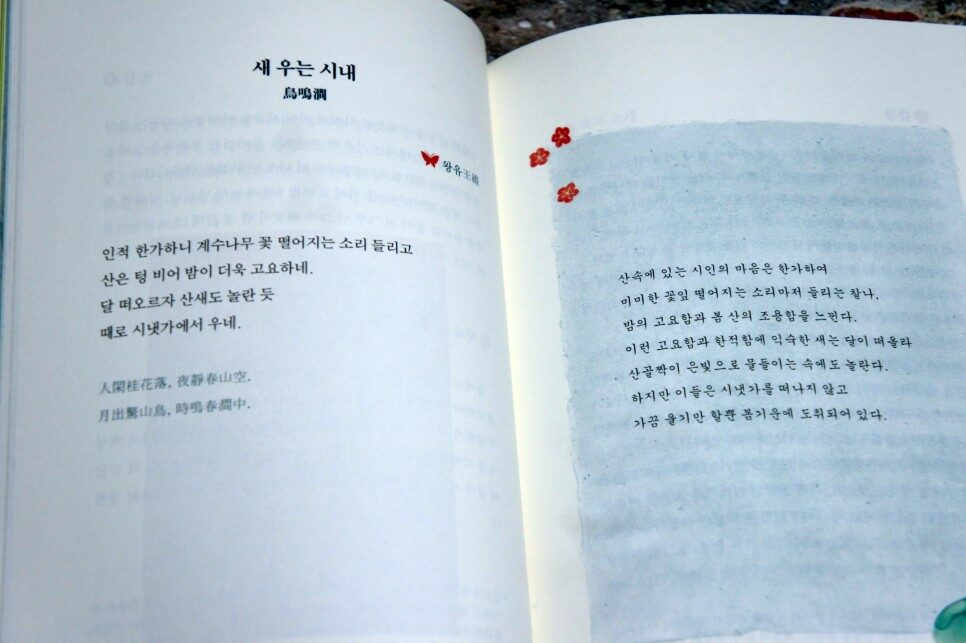 새 우는 시내
鳥鳴澗
왕유王維
인적 한가하니 계수나무 꽃 떨어지는 소리 들리고
산은 텅 비어 밤이 더욱 고요하네.
달 떠오르자 산새도 놀란 듯
때로 시냇가에서 우네.
人閑桂花落, 夜靜春山空.
月出驚山鳥, 時鳴春澗中.
산속에 있는 시인의 마음은 한가하여
미미한 꽃잎 떨어지는 소리마저 들리는 찰나,
밤의 고요함과 봄 산의 조용함을 느낀다.
이런 고요함과 한적함에 익숙한 새는 달이 떠올라
산골짝이 은빛으로 물들이는 속에도 놀란다.
하지만 이들은 시냇가를 떠나지 않고
가끔 울기만 할뿐 봄기운에 도취되어 있다.